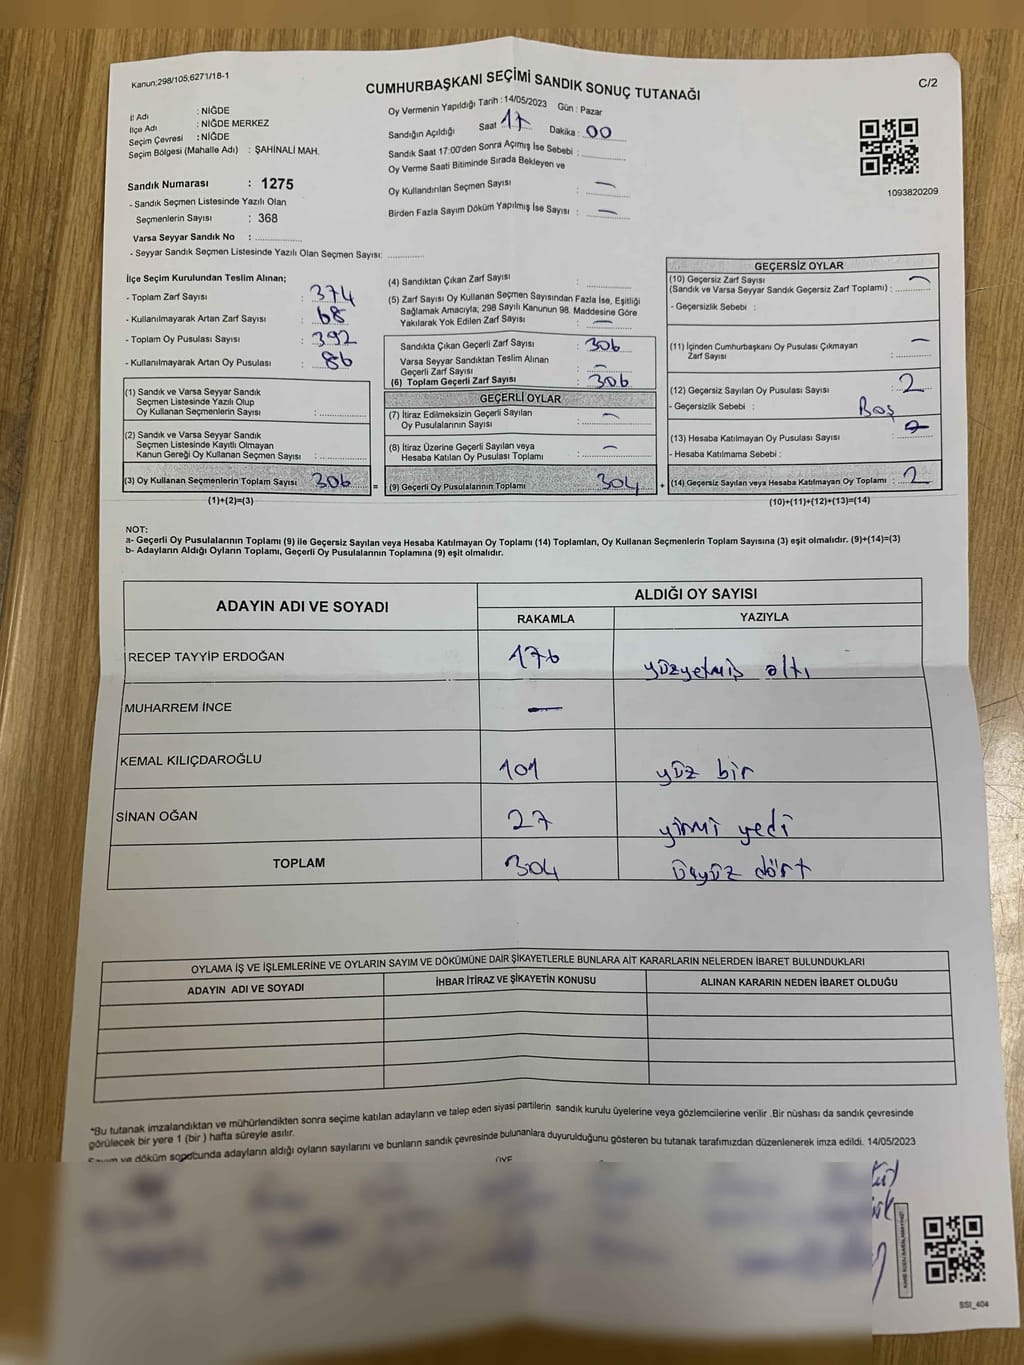 Kanun;298/105;6271/18-1
CUMHURBAŞKANI SEÇİMİ SANDIK SONUÇ TUTANAĞI
C/2
İl Adı : NİĞDE
İlçe Adı : NİĞDE MERKEZ
Seçim Çevresi : NİĞDE
Seçim Bölgesi (Mahalle Adı) : ŞAHİNALİ MAH.
Sandık Numarası : 1275
- Sandık Seçmen Listesinde Yazılı Olan
Seçmenlerin Sayısı : 368
Varsa Seyyar Sandık No : ..............
- Seyyar Sandık Seçmen Listesinde Yazılı Olan Seçmen Sayısı: ............
Oy Vermenin Yapıldığı Tarih : 14/05/2023 Gün : Pazar
Sandığın Açıldığı Saat 17 Dakika : 00
Sandık Saat 17:00'den Sonra Açımış İse Sebebi : ..............
Oy Verme Saati Bitiminde Sırada Bekleyen ve
Oy Kullandırılan Seçmen Sayısı : —
Birden Fazla Sayım Döküm Yapılmış İse Sayısı : —
1093820209
İlçe Seçim Kurulundan Teslim Alınan;
- Toplam Zarf Sayısı : 374
- Kullanılmayarak Artan Zarf Sayısı : 68
- Toplam Oy Pusulası Sayısı : 392
- Kullanılmayarak Artan Oy Pusulası : 86
(1) Sandık ve Varsa Seyyar Sandık
Seçmen Listesinde Yazılı Olup
Oy Kullanan Seçmenlerin Sayısı : ..............
(2) Sandık ve Varsa Seyyar Sandık
Seçmen Listesinde Kayıtlı Olmayan
Kanun Gereği Oy Kullanan Seçmen Sayısı : ..............
(3) Oy Kullanan Seçmenlerin Toplam Sayısı : 306 =
(1)+(2)=(3)
(4) Sandıktan Çıkan Zarf Sayısı : ..............
(5) Zarf Sayısı Oy Kullanan Seçmen Sayısından Fazla İse, Eşitliği
Sağlamak Amacıyla, 298 Sayılı Kanunun 98. Maddesine Göre
Yakılarak Yok Edilen Zarf Sayısı : —
Sandıkta Çıkan Geçerli Zarf Sayısı : 306
Varsa Seyyar Sandıktan Teslim Alınan
Geçerli Zarf Sayısı : —
(6) Toplam Geçerli Zarf Sayısı : 306
GEÇERLİ OYLAR
(7) İtiraz Edilmeksizin Geçerli Sayılan
Oy Pusulalarının Sayısı : —
(8) İtiraz Üzerine Geçerli Sayılan veya
Hesaba Katılan Oy Pusulası Toplamı : —
(9) Geçerli Oy Pusulalarının Toplamı : 304 +
GEÇERSİZ OYLAR
(10) Geçersiz Zarf Sayısı
(Sandık ve Varsa Seyyar Sandık Geçersiz Zarf Toplamı) : —
- Geçersizlik Sebebi :
(11) İçinden Cumhurbaşkanı Oy Pusulası Çıkmayan
Zarf Sayısı : —
(12) Geçersiz Sayılan Oy Pusulası Sayısı : 2
- Geçersizlik Sebebi : Boş
(13) Hesaba Katılmayan Oy Pusulası Sayısı :
- Hesaba Katılmama Sebebi :
(14) Geçersiz Sayılan veya Hesaba Katılmayan Oy Toplamı : 2
(10)+(11)+(12)+(13)=(14)
NOT:
a- Geçerli Oy Pusulalarının Toplamı (9) ile Geçersiz Sayılan veya Hesaba Katılmayan Oy Toplamı (14) Toplamları, Oy Kullanan Seçmenlerin Toplam Sayısına (3) eşit olmalıdır. (9)+(14)=(3)
b- Adayların Aldığı Oyların Toplamı, Geçerli Oy Pusulalarının Toplamına (9) eşit olmalıdır.
ADAYIN ADI VE SOYADI
ALDIĞI OY SAYISI
RAKAMLA YAZIYLA
RECEP TAYYİP ERDOĞAN 176 yüzyetmiş altı
MUHARREM İNCE —
KEMAL KILIÇDAROĞLU 101 yüz bir
SİNAN OĞAN 27 yirmi yedi
TOPLAM 304 üçyüz dört
OYLAMA İŞ VE İŞLEMLERİNE VE OYLARIN SAYIM VE DÖKÜMÜNE DAİR ŞİKAYETLERLE BUNLARA AİT KARARLARIN NELERDEN İBARET BULUNDUKLARI
ADAYIN ADI VE SOYADI İHBAR İTİRAZ VE ŞİKAYETİN KONUSU ALINAN KARARIN NEDEN İBARET OLDUĞU
*Bu tutanak imzalandıktan ve mühürlendikten sonra seçime katılan adayların ve talep eden siyasi partilerin sandık kurulu üyelerine veya gözlemcilerine verilir .Bir nüshası da sandık çevresinde
görülecek bir yere 1 (bir ) hafta süreyle asılır.
Sayım ve döküm sonucunda adayların aldığı oyların sayılarını ve bunların sandık çevresinde bulunanlara duyurulduğunu gösteren bu tutanak tarafımızdan düzenlenerek imza edildi. 14/05/2023
ÜYE
SSI_404